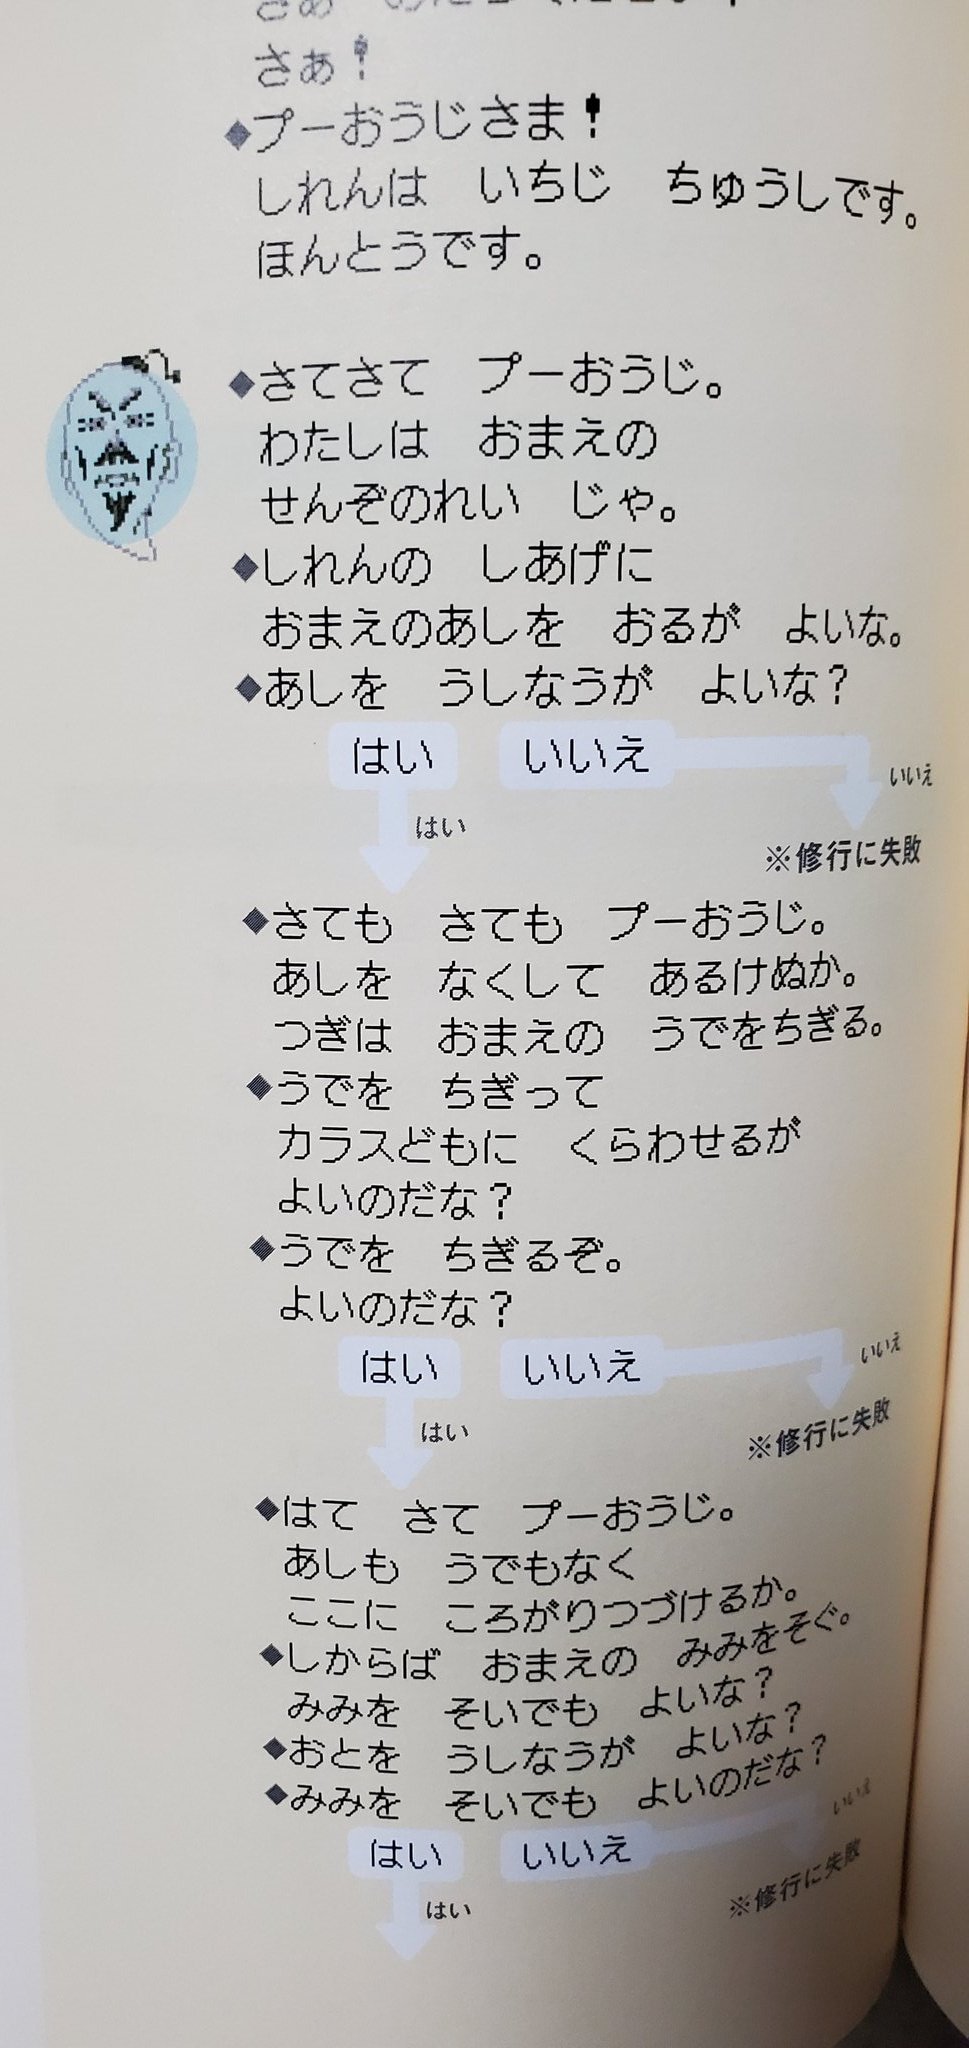 さあ！
◆プーおうじさま！
しれんは　いちじ　ちゅうしです。
ほんとうです。
◆さてさて　プーおうじ。
わたしは　おまえの
せんぞのれい　じゃ。
◆しれんの　しあげに
おまえのあしを　おるが　よいな。
◆あしを　うしなうが　よいな？
はい　いいえ
いいえ
はい
※修行に失敗
◆さても　さても　プーおうじ。
あしを　なくして　あるけぬか。
つぎは　おまえの　うでをちぎる。
◆うでを　ちぎって
カラスどもに　くらわせるが
よいのだな？
◆うでを　ちぎるぞ。
よいのだな？
はい　いいえ
いいえ
はい
※修行に失敗
◆はて　さて　プーおうじ。
あしも　うでもなく
ここに　ころがりつづけるか。
◆しからば　おまえの　みみをそぐ。
みみを　そいでも　よいな？
◆おとを　うしなうが　よいな？
◆みみを　そいでも　よいのだな？
はい　いいえ
いいえ
はい
※修行に失敗